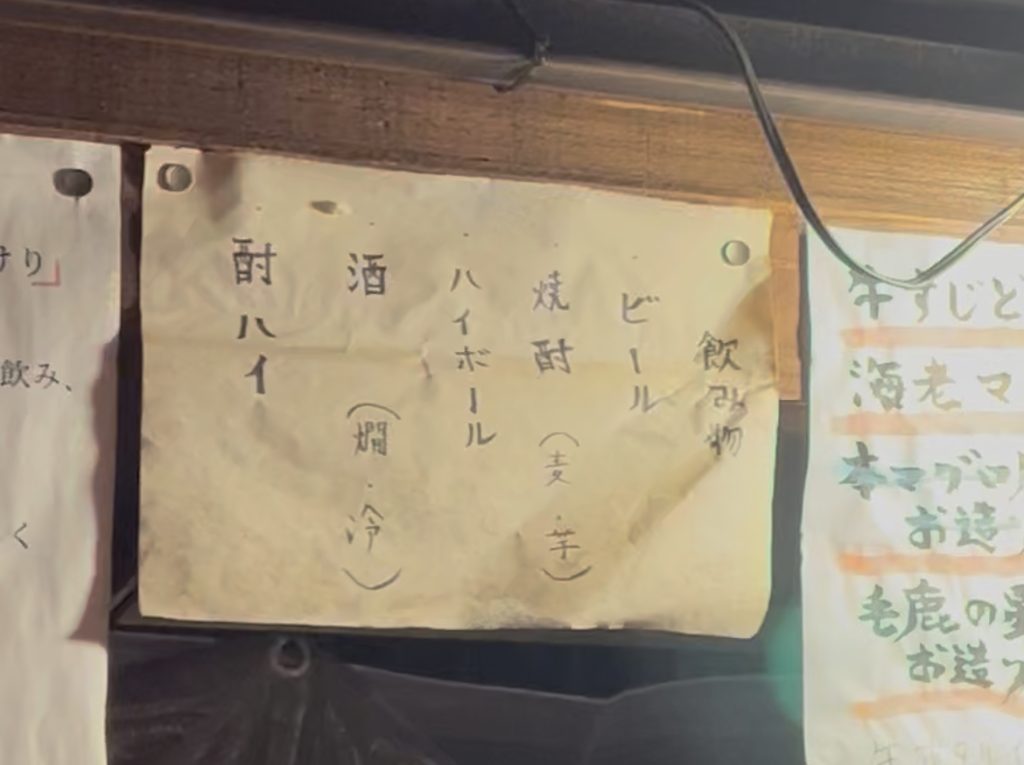 飲み物
ビール
焼酎（麦・芋）
ハイボール
酒（燗・冷）
酎ハイ
牛すじ
海老マ
本マグロ
お造
毛鹿の
お造
けり」
飲み、
く